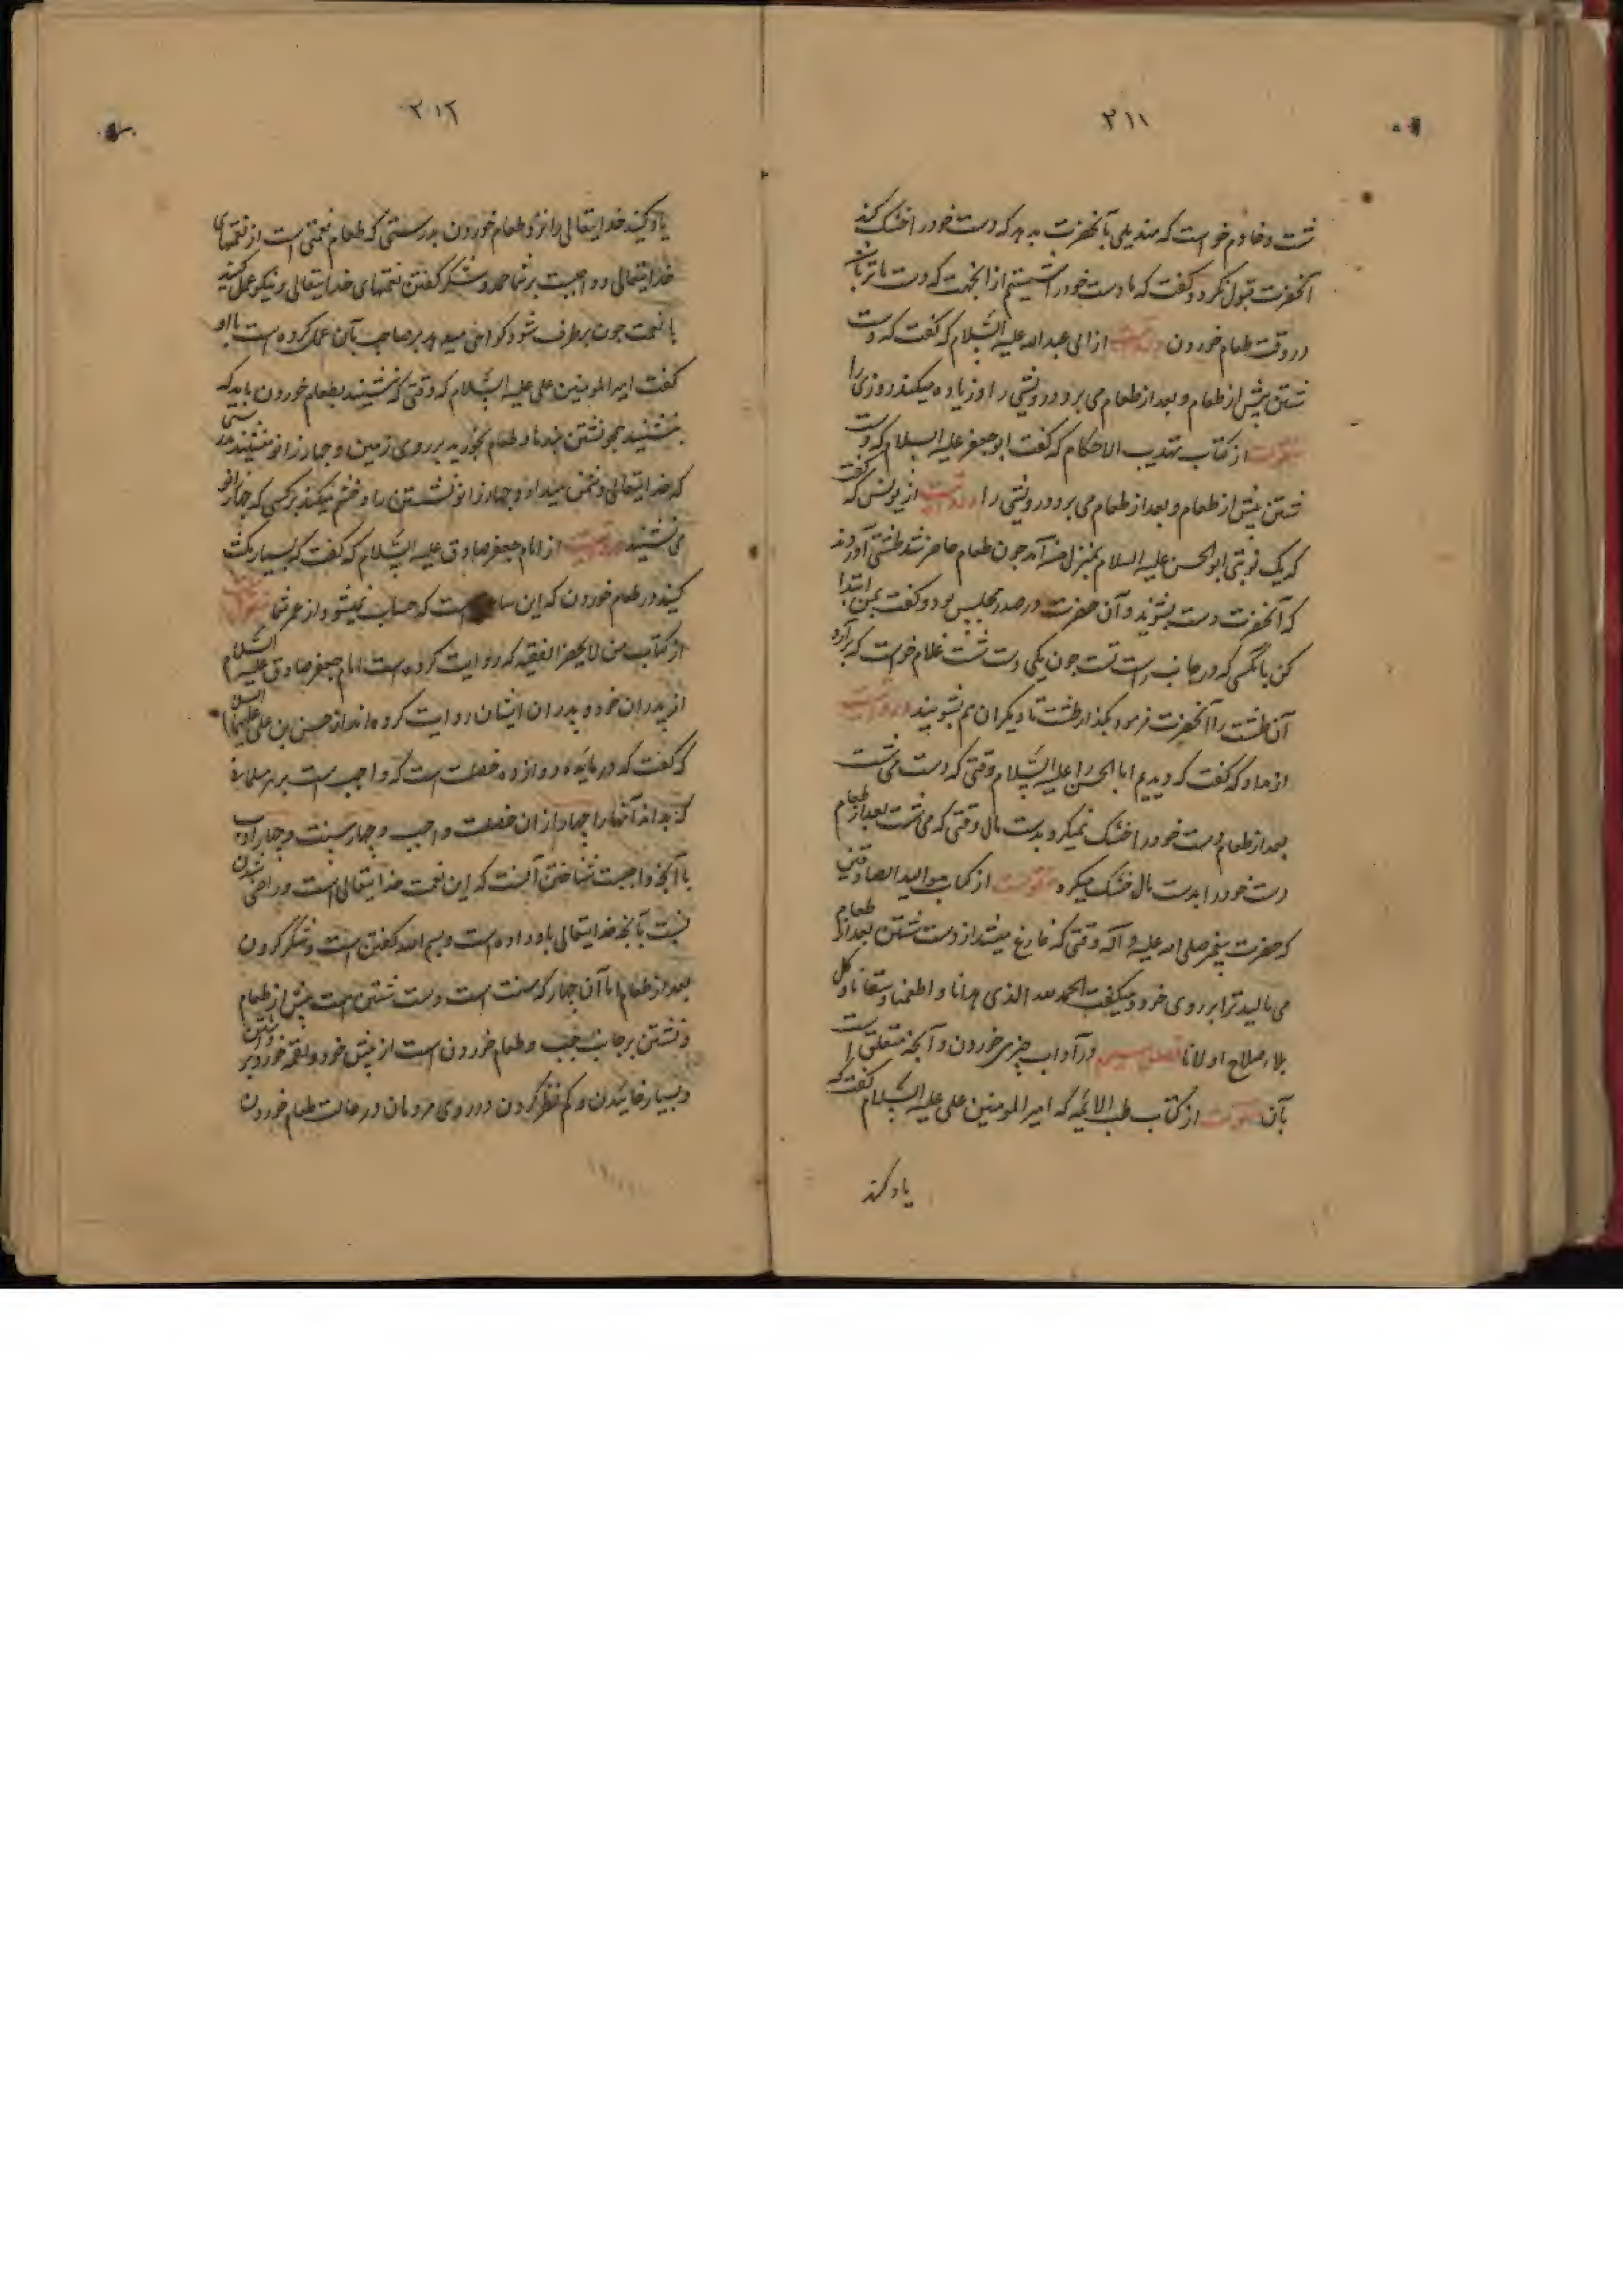 ۳۱۱
شست و خادم خواست که مندیلی بآنحضرت بدهد که دست خود را خشک کند
آنحضرت قبول نکرد و گفت که ما دست خود را شستیم از انجهت که دست ما تر باشد
در وقت طعام خوردن از ابی عبدالله علیه السلام که گفت که دست
شستن پیش از طعام و بعد از طعام می برد درویشی را و زیاده میکند روزی را
منقولست از کتاب تهذیب الاحکام که گفت ابو جعفر علیه السلام که دست
شستن پیش از طعام و بعد از طعام می برد درویشی را از یونس که گفت
که یک نوبتی ابوالحسن علیه السلام بمنزل آمد چون طعام حاضر شد طشتی آوردند
که آنحضرت دست بشوید و آن حضرت در صدر مجلس بود و گفت بمن ابتدا
کن بانکسی که در جانب راست تست چون یکی دست شست غلام خواست که بردارد
آن طشت را آنحضرت فرمود بگذار طشت تا دیگران هم بشویند
از که گفت که دیدیم ابا الحسن را علیه السلام وقتی که دست می شست
بعد از طعام دست خود را خشک نمیکرد بدست مال وقتی که می شست بعد از طعام
دست خود را بدست مال خشک میکرد منقولست از کتاب
که حضرت پیغمبر صلی الله علیه و آله وقتی که فارغ میشد از دست شستن بعد از طعام
می مالید تر را بر روی خود و میگفت الحمد لله الذی هدانا و اطعمنا و سقانا و کل
بلاء صلاح اولانا فصل در آداب چیزی خوردن و آنچه متعلق است
بآن منقولست از کتاب طب الائمه که امیر المومنین علی علیه السلام گفت که
یاد کنید
۳۱۲
یاد کنید خدایتعالی را نزد طعام خوردن بدرستی که طعام نعمتی است از نعمتهای
خدایتعالی و واجبست بر شما حمد و شکر گفتن نعمتهای خدایتعالی و نیکو عمل کنید
با نعمت چون برطرف شود گواهی میدهد بر صاحب بآن عمل کرده است با او
گفت امیر المومنین علی علیه السلام که وقتی که بنشینید بطعام خوردن باید که
بنشینید همچو نشستن بنده و طعام بخورید بر روی زمین و چهار زانو منشینید بدرستی
که خدایتعالی دشمن میدارد چهار زانو نشستن را و خشم میکند بر کسی که چهار زانو
می نشیند از امام جعفر صادق علیه السلام که گفت که بسیار مکث
کنید در طعام خوردن که این ساعت است که حساب نمیشود از عمر شما منقولست
از کتاب من لا یحضر الفقیه که روایت کرده است امام جعفر صادق علیه السلام
از پدران خود و پدران ایشان روایت کرده اند از حسن بن علی علیهما السلام
که گفت که در مایده دوازده خصلت است که واجب است بر هر مسلمان
که بداند آنها را چهار از ان خصلت واجب و چهار سنت و چهار ادب
اما آنچه واجبست شناختن آنست که این نعمت خدایتعالی است و راضی شدن
نسبت بآنچه خدایتعالی باو داده است و بسم الله گفتن است و شکر کردن
بعد از طعام اما آن چهار که سنت است دست شستن است پیش از طعام
و نشستن بر جانب چپ و طعام خوردن است از پیش خود و لقمه خورد برداشتن
و بسیار خائیدن و کم نظر کردن در روی مردمان در حالت طعام خوردن